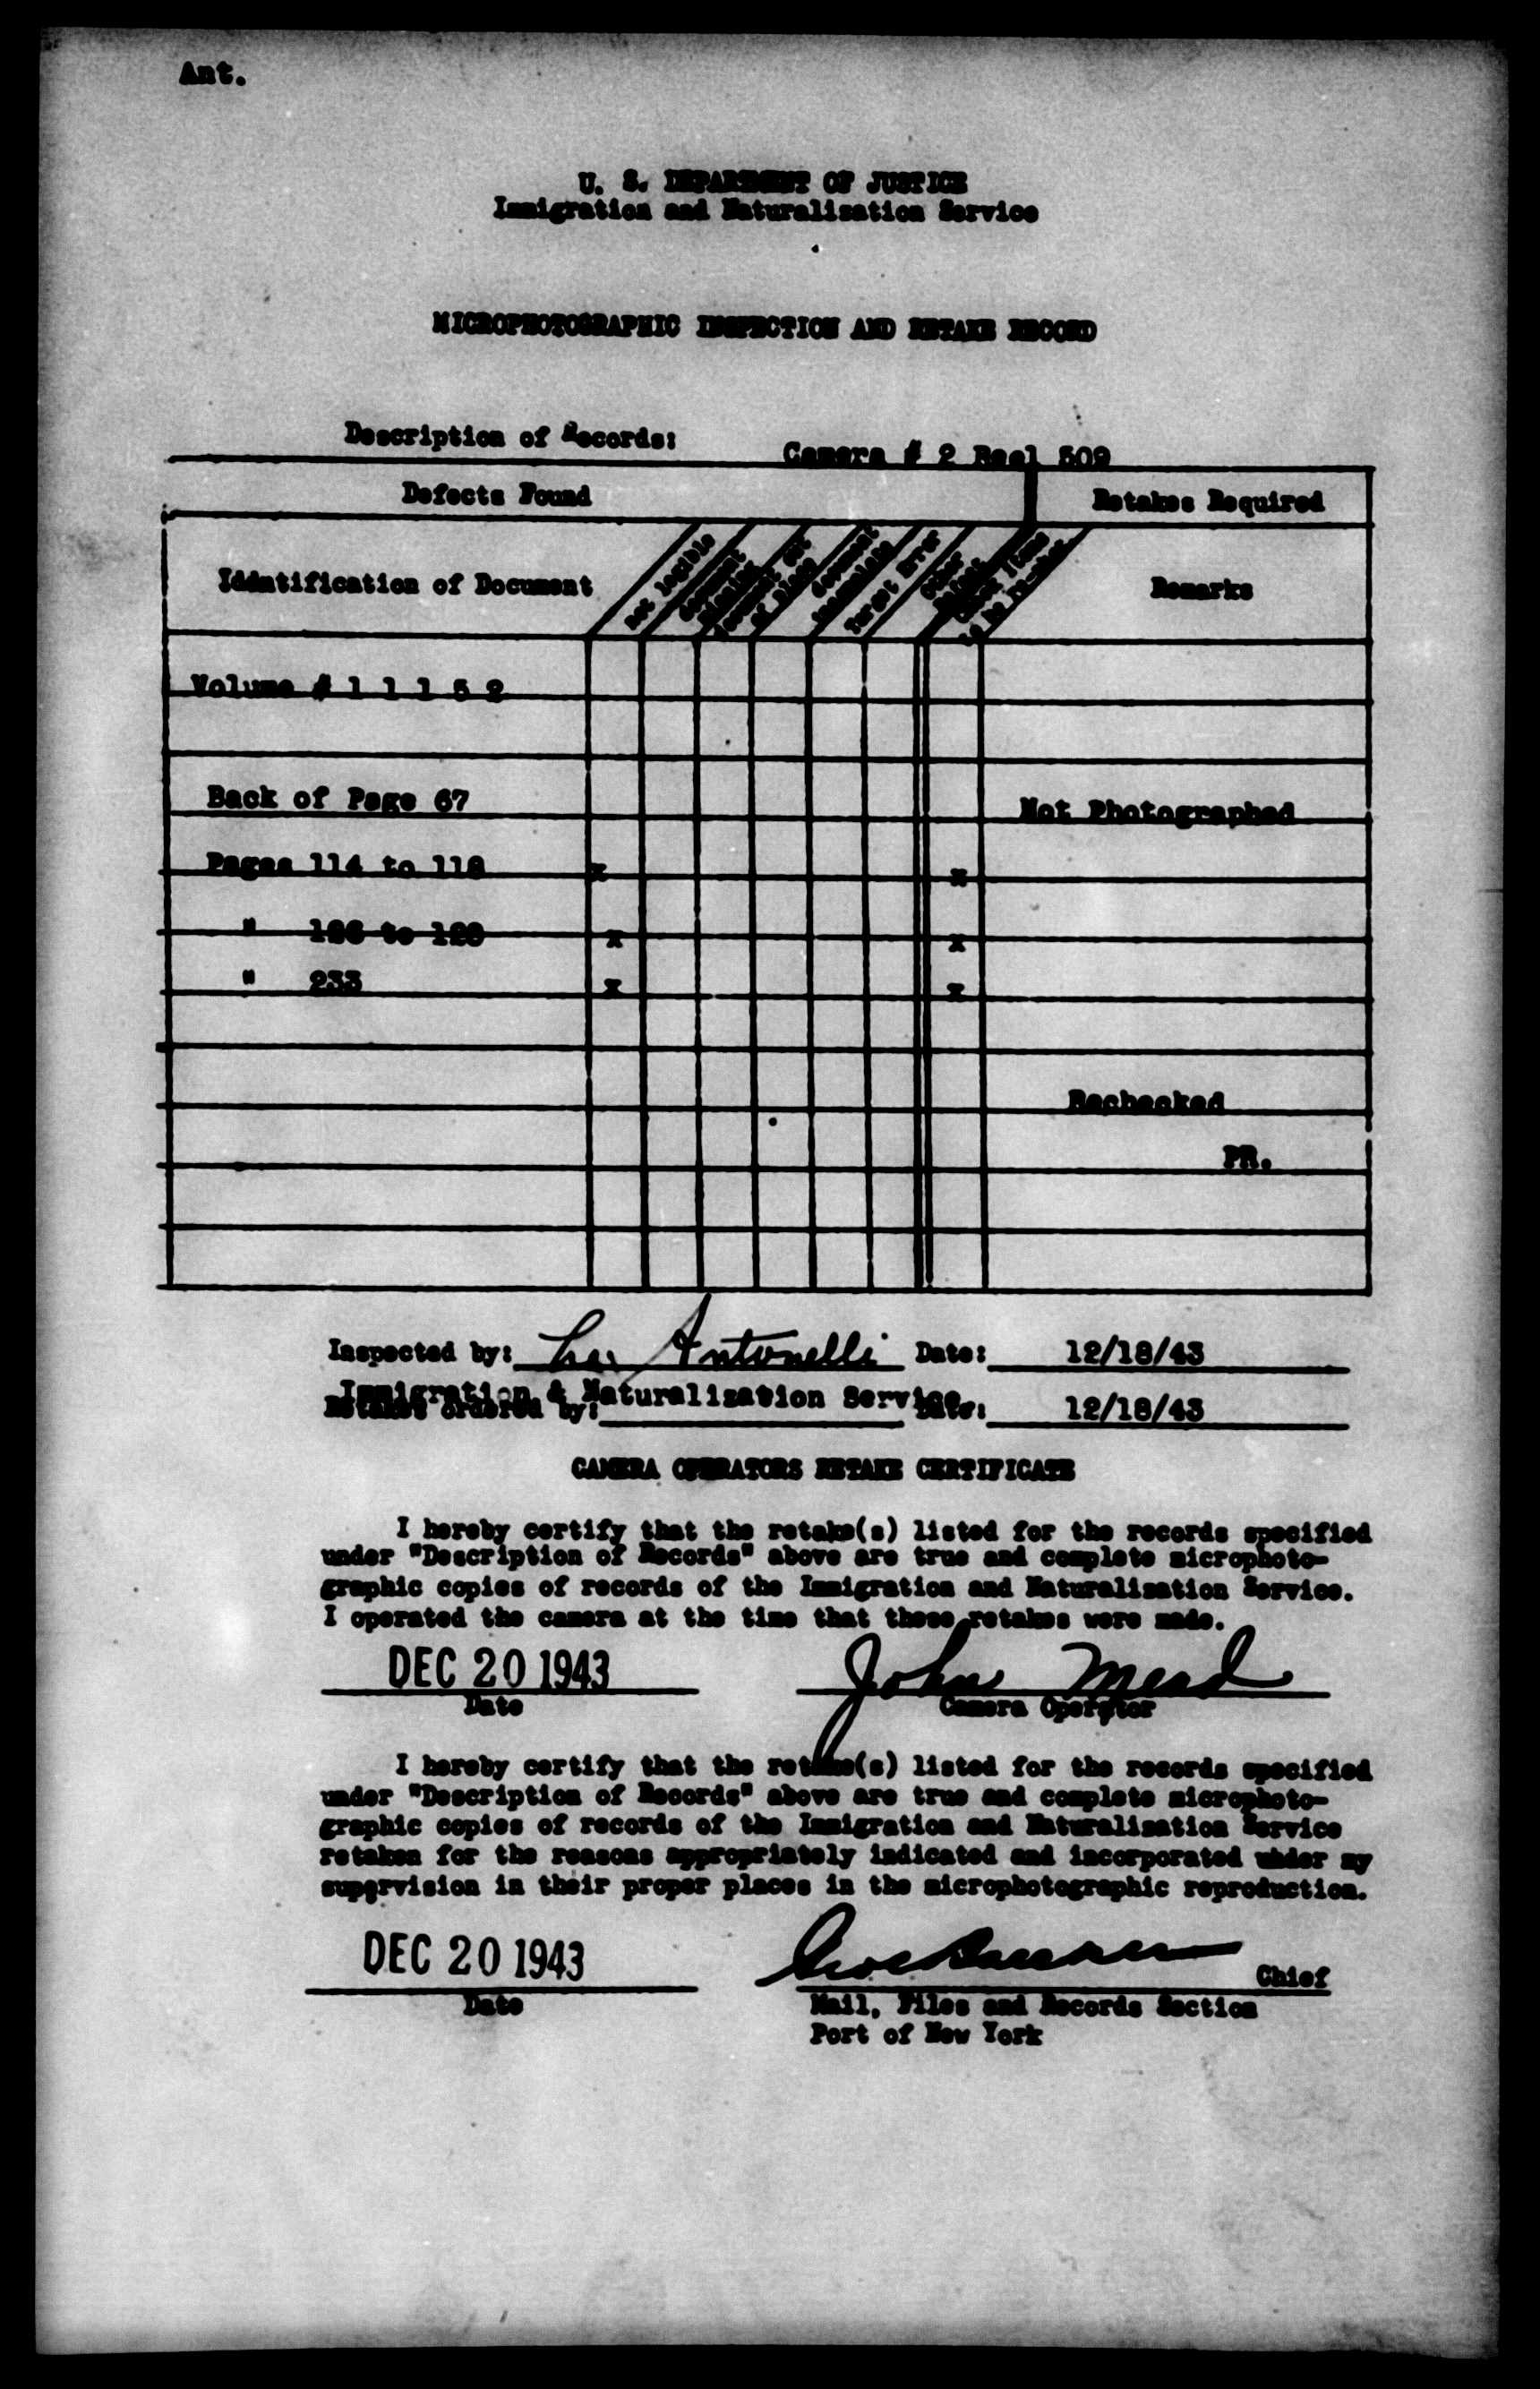 Ant.
U. S. DEPARTMENT OF JUSTICE
Immigration and Naturalization Service
MICROPHOTOGRAPHIC INSPECTION AND RETAKE RECORD
Description of Records:
Camera # 2 Reel 509
Defects Found
Retakes Required
Iddntification of Document
Not legible
Document
Document
Target Error
Other
Remarks
Volume # 1 1 1 5 2
Back of Page 67
Not Photographed
Pages 114 to 118 x x
" to x x
" 233 x x
Rechecked
PR.
Inspected by: Antonelli Date: 12/18/43
Immigration & Naturalization Service
Retakes ordered by: Date: 12/18/43
CAMERA OPERATORS RETAKE CERTIFICATE
I hereby certify that the retake(s) listed for the records specified
under "Description of Records" above are true and complete microphoto-
graphic copies of records of the Immigration and Naturalization Service.
I operated the camera at the time that these retakes were made.
DEC 20 1943 John Mead
Date Camera Operator
I hereby certify that the retake(s) listed for the records specified
under "Description of Records" above are true and complete microphoto-
graphic copies of records of the Immigration and Naturalization Service
retaken for the reasons appropriately indicated and incorporated under my
supervision in their proper places in the microphotographic reproduction.
DEC 20 1943
Chief
Date Mail, Files and Records Section
Port of New York